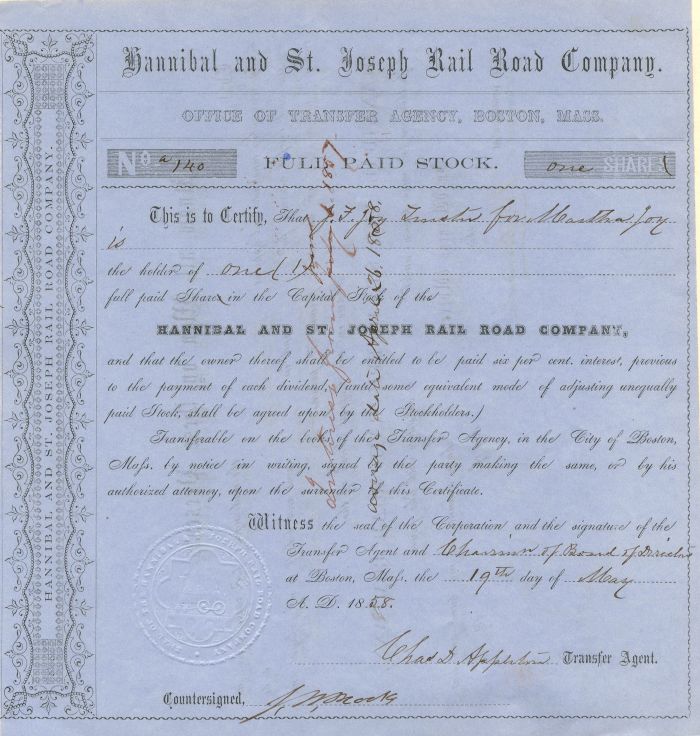 Hannibal and St. Joseph Rail Road Company.
OFFICE OF TRANSFER AGENCY, BOSTON, MASS.
No a 140 FULL PAID STOCK. one SHARE
This is to Certify, That J. F. Joy Trustee for Martha Joy
is
the holder of one (1)
full paid Share in the Capital Stock of the
HANNIBAL AND ST. JOSEPH RAIL ROAD COMPANY,
and that the owner thereof shall be entitled to be paid six per cent. interest, previous
to the payment of each dividend, (until some equivalent mode of adjusting unequally
paid Stock, shall be agreed upon by the Stockholders.)
Transferable on the books of the Transfer Agency, in the City of Boston,
Mass. by notice in writing, signed by the party making the same, or by his
authorized attorney, upon the surrender of this Certificate.
Witness the seal of the Corporation and the signature of the
Transfer Agent and Chairman of Board of Directors
at Boston, Mass. the 19th day of May
A. D. 1858.
Chas D Appleton Transfer Agent.
Countersigned,
HANNIBAL AND ST. JOSEPH RAIL ROAD COMPANY.
Interest from
average date April 26, 1858,